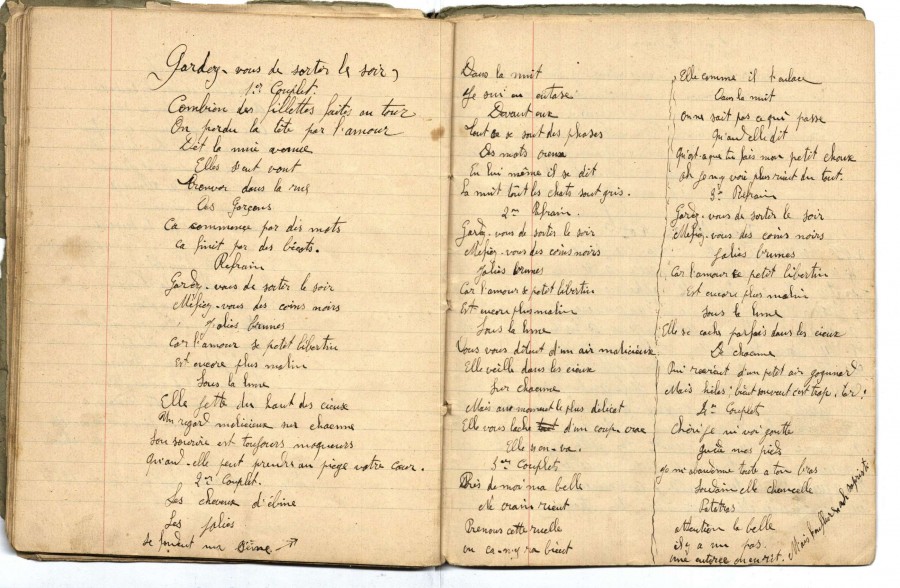 Gardez-vous de sortir le soir
1er Couplet.
Combien des fillettes faites au tour
On perdu la tête par l'amour
Dèt la nuie venue
Elles s'eut vont
trouver dans la rue
Les Garçons
Ca commence par dès mots
ca finit par des bécots.
Refrain
Gardez-vous de sortir le soir
Méfiez-vous des coins noirs
Jolies brunes
Car l'amour se petit libertin
Est encore plus malin
Sous la lune
Elle jette du haut des cieux
Un regard malicieux sur chacune
Son sourire est toujours moqueurs
Quand-elle peut prendre au piège votre cœur.
2me Couplet.
Les cheveux d'ébine
Les jolies
se perdent
Dans la nuit
Je sui en extase
Devant eux
Tout ce se sont des phases
Des mots creux
En lui même il se dit
La nuit tout les chats sont gris.
2me Refrain.
Gardez-vous de sortir le soir
Méfiez-vous des coins noirs
Jolies brunes
Car l'amour se petit libertin
Est encore plus malin
Sous la lune
Vous vous d'un air malicieux
Elle veille dans les cieux
Sur chacune
Mais aux moment le plus délicat
Elle vous lache d'un coup crac
Elle s'en-va.
3me Couplet
Près de moi ma belle
Ne crain rient
Prenons cette ruelle
on ca-n-y ra bient
Elle comme il l'enlace
Dans la nuit
on ne sait pas ce qui passe
Quand elle dit
Qu'est-ce que tu fais mon petit choux
ah j'en y voie plus rient du tout.
3e Refrain
Gardez-vous de sortir le soir
Méfiez-vous des coins noirs
Jolies brunes
Car l'amour ce petit libertin
Est encore plus malin
Sous la lune
Elle se cache parfois dans les cieux
De chacune
Qui revient d'un petit air
Mais hélas! bient souvent c'est trop tard!
4me Couplet
Chérie je ni voi goutte
mes pieds
je m'abandonne toute a ton bras
Soudain elle chancelle
Patatras
Attention la belle
il y a un pas.